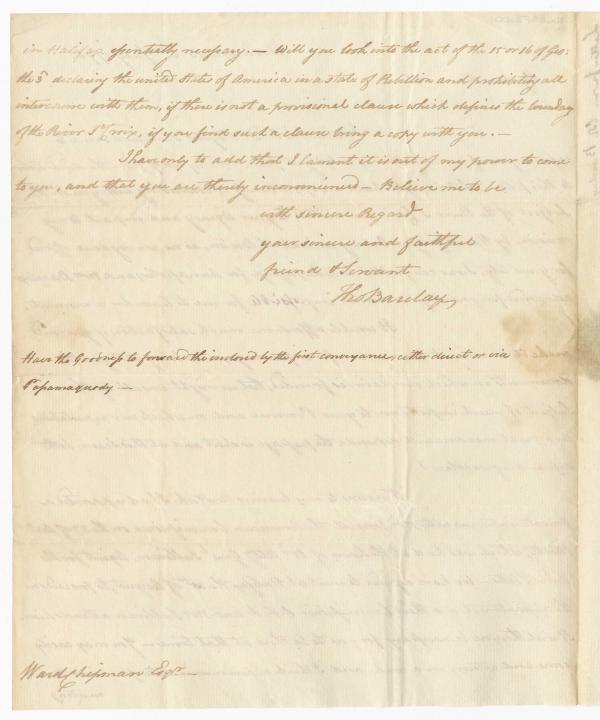 in Halifax essentially necessary. — Will you look into the act of the 15 or 16 of Geo:
the 3d declaring the united States of America in a state of Rebellion and prohibiting all
intercourse with them, if there is not a provisional clause which defines the boundary
of the River St Croix, if you find such a clause bring a copy with you. —
I have only to add that I lament it is out of my power to come
to you, and that you are thereby inconvenienced — Believe me to be
with sincere Regard
your sincere and faithful
friend & Servant
Tho Barclay
Have the Goodness to forward the inclosed by the first conveyance, either direct or via
Pasamaquody —
Ward Chipman Esqr